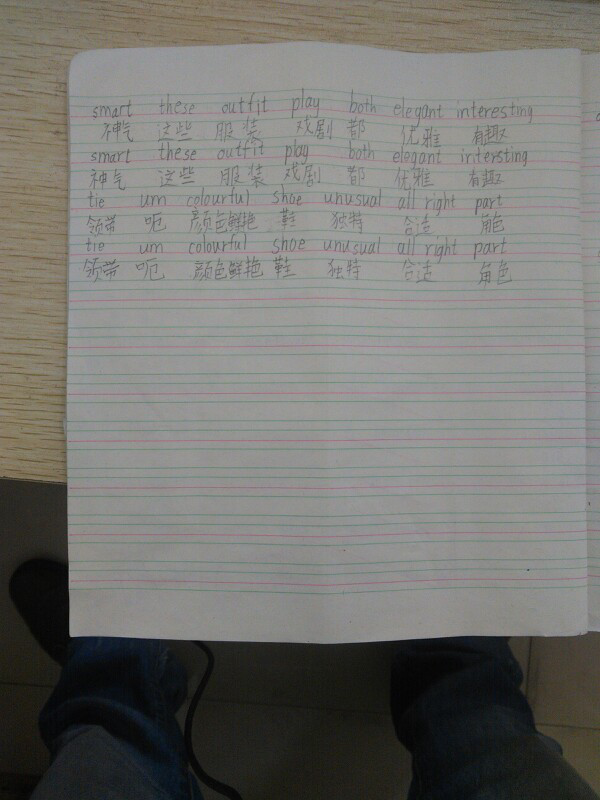 smart these outfit play both elegant interesting
神气 这些 服装 戏剧 都 优雅 有趣
smart these outfit play both elegant intersting
神气 这些 服装 戏剧 都 优雅 有趣
tie um colourful shoe unusual all right part
领带 呃 颜色鲜艳 鞋 独特 合适 角色
tie um colourful shoe unusual all right part
领带 呃 颜色鲜艳 鞋 独特 合适 角色